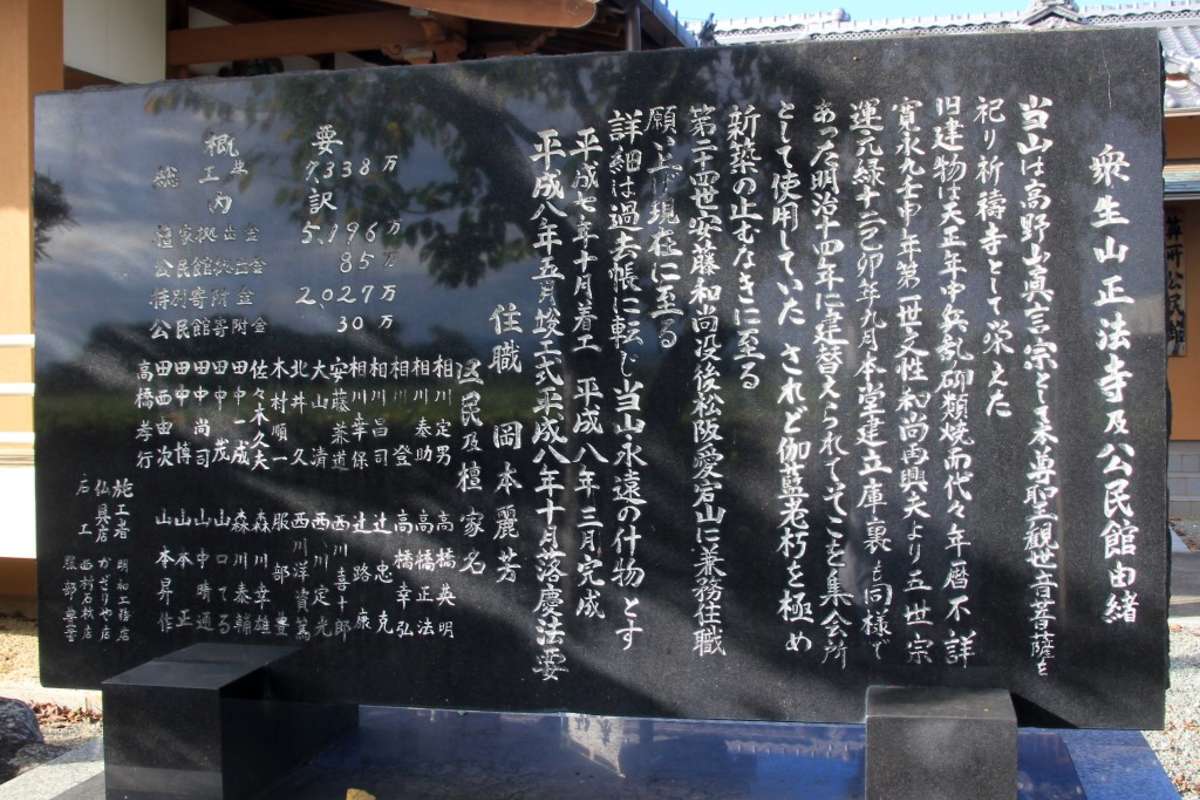 衆生山正法寺及公民館由緒
当山は高野山眞言宗として本尊聖観世音菩薩を
祀り祈禱寺として栄えた
旧建物は天正年中兵乱砌類焼而代々年暦不詳
寛永九壬申年第一世文性和尚再興夫より五世宗
運元緑十二己卯年九月本堂建立庫裏も同様で
あった明治十四年に建替えられてそこを集会所
として使用していた されど伽藍老朽を極め
新築の止むなきに至る
第二十四世安藤和尚没後松阪愛宕山に兼務住職
願い上げ現在に至る
詳細は過去帳に転じ当山永遠の什物とす
平成七年十月着工 平成八年三月完成
平成八年五月竣工式平成八年十月落慶法要
住職 岡本麗芳
区民及檀家名
相川定男 高橋英明
相川泰助 高橋正法
相川登 高橋幸弘
相川昌司 辻忠克
相川幸保 辻路康
安藤兼道 西川喜十郎
大山清 西川定光
北井久 西川洋賀篤
木村順一 服部豊
佐々木久夫 森川幸雄
田中一成 森川泰輔
田中茂 山口てる
田中尚司 山中晴通
田中博 山本正
田西由次 山本昇作
高橋孝行
概要
総工費 7,338万
内訳
檀家拠出金 5,196万
公民館拠出金 85万
特別寄附金 2,027万
公民館寄附金 30万
施工者 明和工務店
仏具店 かざりや店
石工 西村石材店
服部
公民館